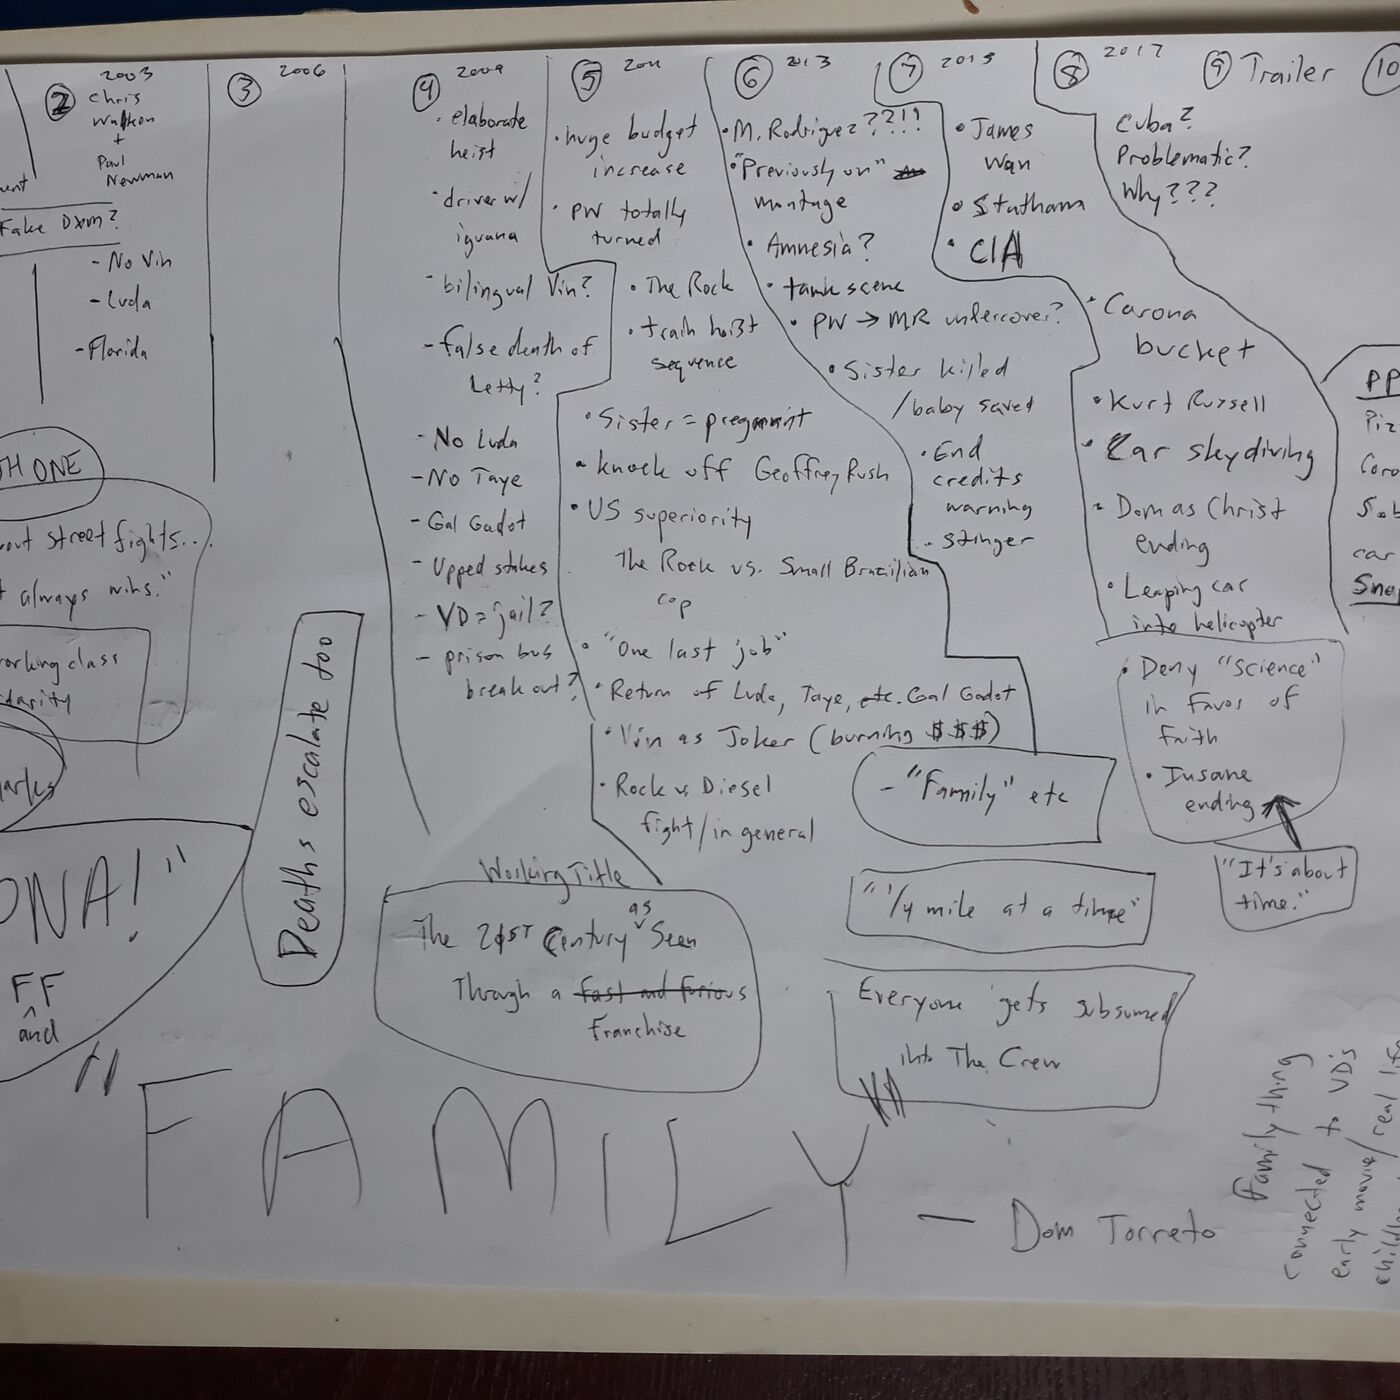 2
2003
Chris
Walken
+
Paul
Newman
Fake Dom?
- No Vin
- Luda
- Florida
TH ONE
out street fights...
always wins."
working class
ONA!"
FF
and
3
2006
Deaths escalate too
4
2009
• elaborate
heist
• driver w/
iguana
- bilingual Vin?
- false death of
Letty?
- No Luda
- No Taye
- Gal Gadot
- Upped stakes
- VD = jail?
- prison bus
breakout?
5
2011
• huge budget
increase
• PW totally
turned
• The Rock
• train heist
sequence
• Sister = pregnant
• knock off Geoffrey Rush
• US superiority
The Rock vs. Small Brazilian
cop
• "One last job"
• Return of Luda, Taye, etc. Gal Gadot
• Vin as Joker (burning $$$)
• Rock vs Diesel
fight/in general
6
2013
• M. Rodriguez???!!
• "Previously on"
montage
• Amnesia?
• tank scene
• PW → MR undercover?
• Sister killed
/baby saved
• End
credits
warning
• Stinger
7
2015
• James
Wan
• Statham
• CIA
• Carona
bucket
• Kurt Russell
• Car skydiving
• Dom as Christ
ending
• Leaping car
into helicopter
8
2017
Cuba?
Problematic?
Why???
9 Trailer
10
• Deny "Science"
in favor of
faith
• Insane
ending
"It's about
time."
- "Family" etc
"1/4 mile at a time"
Everyone gets subsumed
into The Crew
Working Title
The 21st Century as Seen
Through a fast and furious
Franchise
"FAMILY"
— Dom Torreto
Family thing
connected to VD's
early movie/real life
PP
car